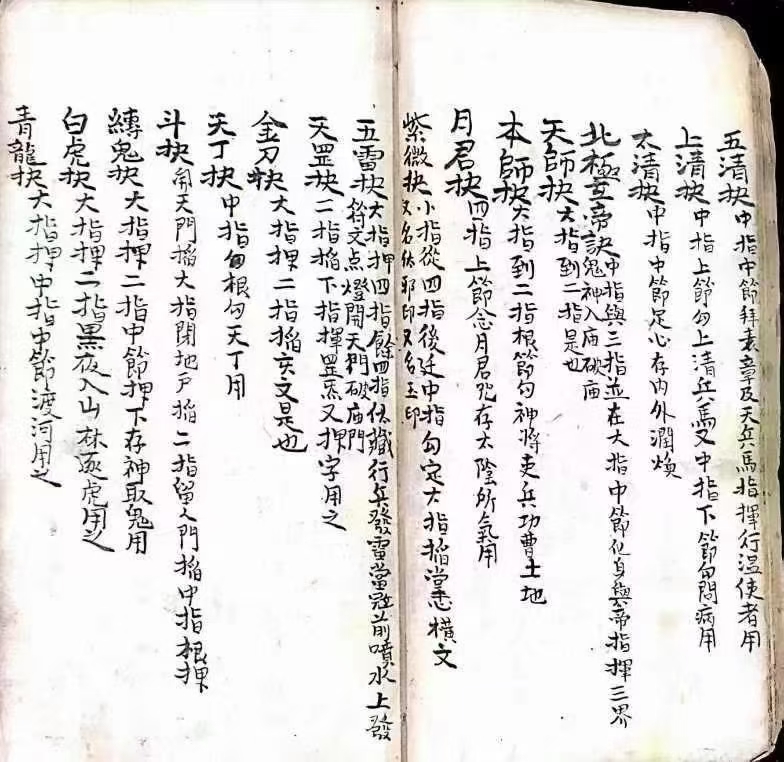 五清抉中指中節拜表章及天兵馬指揮行溫使者用
上清抉中指上節勾上清兵馬又中指下節勾問病用
太清抉中指中節足心存內外潤煥
北極玄帝訣中指與三指並在大指中節化身與帝指揮三界
鬼神入庙破庙
天師抉大指到二指是也
本師抉大指到二指根節勾神將吏兵功曹土地
月君抉四指上節念月君咒存太陰所氣用
紫微抉小指從四指後过中指勾定大指搯掌心横文
又名伏邪印又名玉印
五雷抉大指押四指餘四指伏藏行兵發雷當冠前噴水上發
符文点燈開天門破庙門
天罡抉二指搯下指揮罡炁又押字用之
金刀抉大指押二指搯亥文是也
天丁抉中指勾根勾天丁用
斗抉開天門搯大指閉地户搯二指留人門搯中指根押
縛鬼抉大指押二指中節押下存神取鬼用
白虎抉大指押二指黑夜入山林逐虎用之
青龍抉大指押中指中節渡河用之